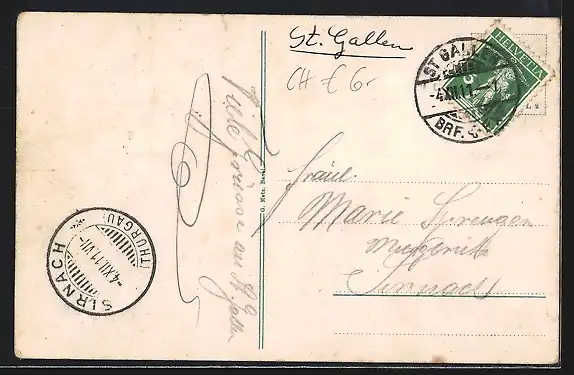 St. Gallen
CH € 6.-
HELVETIA
5
ST. GALLEN
-4.XII.11.-
BRF.
Viele Grüsse aus St. Gallen
G. Metz, Basel
Fräul.
Marie Sprenger
Sirnach
SIRNACH
-4.XII.11.VII-
(THURGAU)